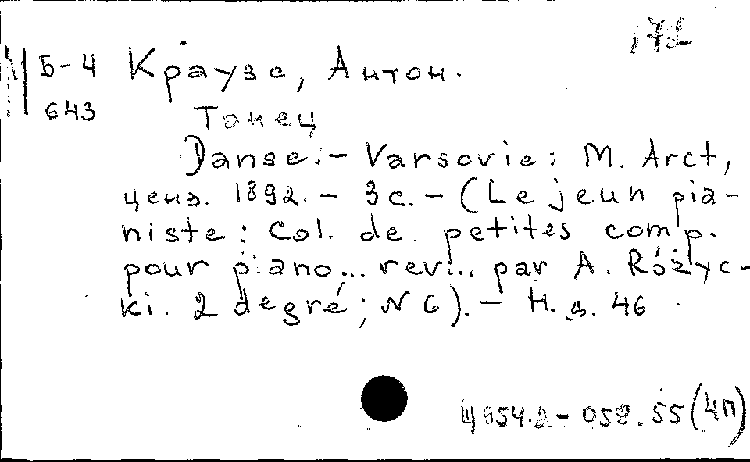 172
Б-4 Краузе, Антон.
643 Танец
Danse. - Varsovie: M. Arct,
ценз. 1892. - 3 с. - (Le jeun pia-
niste: Col. de petites comp.
pour piano... rev... par A. Różyc-
ki. 2 degré; N 6). - Н.д. 46
Щ954.2-058.55(4П)